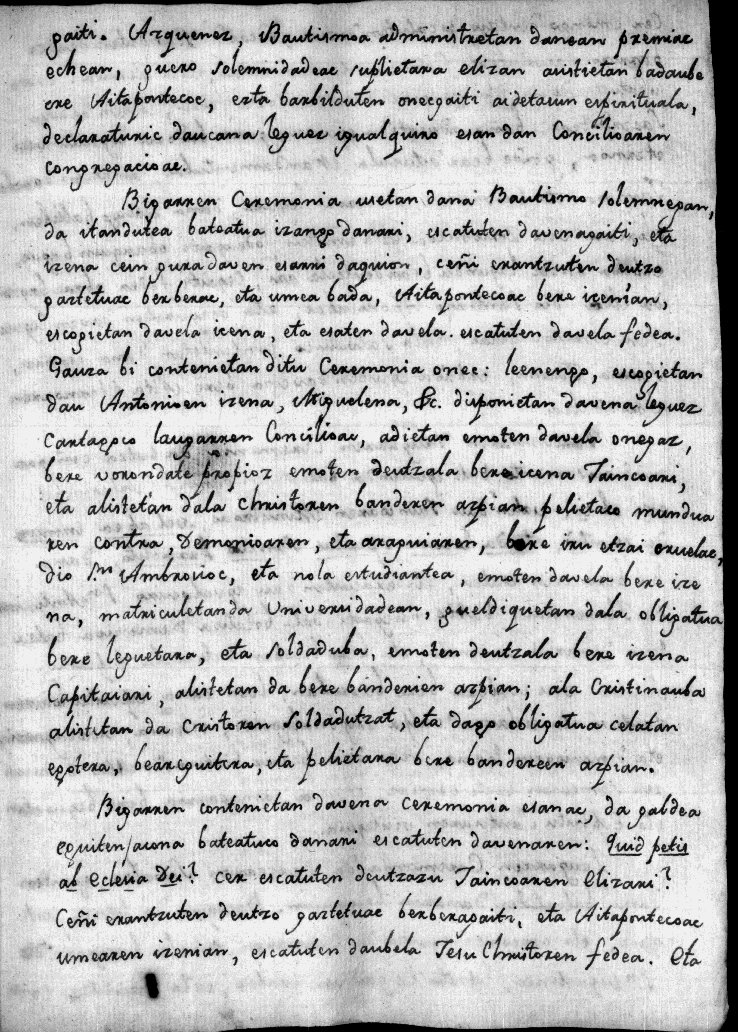 gaiti. Azquenez, Bautismoa administretan danean premiaz
echean, guero solemnidadeac suplietara elizan asistietan badaube
ere Aitapontecoc, ezta barbilduten onecgaiti aidetasun espirituala,
declaraturic daucana leguez igualquiro esan dan Concilioaren
congregacioac.
Bigarren Ceremonia usetan dana Bautismo solemnegan,
da itandutea bateatua izango danari, escatuten davenagaiti, eta
izena cein gura daven esarri daquion, ceñi erantzuten deutzo
gaztetuac berberac, eta umea bada, Aitapontecoac bere icenian,
escogietan davela icena, eta esaten davela escatuten davela fedea.
Gauza bi contenietan ditu Ceremonia onec: leenengo, escogietan
dau Antonioen izena, Miguelena, &c. disponietan davena leguez
Cartagoco laugarren Concilioac, adietan emoten davela onegaz,
bere vorondate propioz emoten deutzala bere icena Jaincoari,
eta alistetan dala Christoren banderen azpian pelietaco mundua
ren contra, Demonioaren, eta araguiaren, bere iru etzai cruelac,
dio Sn Ambrosioc, eta nola estudiantea, emoten davela bere ize
na, matriculetan da Universidadean, gueldiquetan dala obligatua
bere leguetara, eta soldaduba, emoten deutzala bere izena
Capitaiari, alistetan da bere banderien azpian; ala Cristinauba
alistetan da Cristoren soldadutzat, eta dago obligatua celatan
egotera, beareguitera, eta pelietara bere bandereen azpian.
Bigarren contenietan davena Ceremonia esanac, da galdea
eguiten jacona bateatuco danari escatuten davenaren: Quid petis
ab Eclesia Dei? cer escatuten deutzazu Jaincoaren Elizari?
Ceñi erantzuten deutzo gaztetuac berberagaiti, eta Aitapontecoac
umearen izenian, escatuten daubela Jesu Christoren fedea. Eta